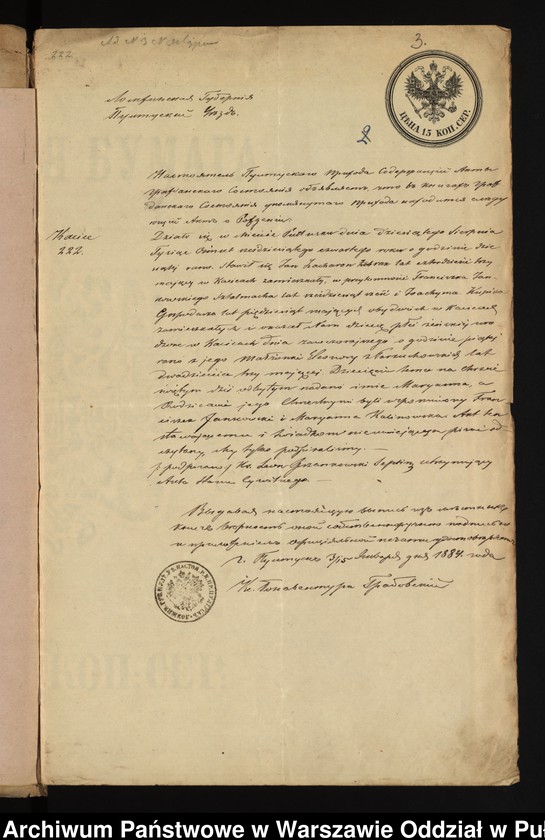 3.
222
ЦѢНА 15 КОП. СЕР.
Ломжинская Губернія
Пултускій Уѣздъ.
2
Настоятель Пултускаго прихода Содержащій Акты
гражданскаго Состоянія объявляетъ что въ книгахъ граж
данскаго Состоянія упомянутаго прихода находится слѣду
ющій Актъ о Рожденіи.
Kacice
222.
Działo się w Mieście Pułtusku dnia dziesiątego Sierpnia
Tysiąc Ośmset sześćdziesiątego czwartego roku o godzinie dzie
siątej rano. Stawił się Jan lat czterdzieści trzy
mający w Kacicach zamieszkały, w przytomności Franciszka Jan
kowskiego lat i Joachyma
Gospodarza lat pięćdziesiąt mających obydwóch w Kacicach
zamieszkałych i okazał Nam dziecię płci żeńskiej uro
dzone w Kacicach dnia wczorajszego o godzinie piątej
rano z jego Małżonki lat
dwadzieścia trzy mającej Dziecięciu temu na Chrzcie
świętym dziś odbytym nadano imie Maryanna, a
Rodzicami jego Chrzestnymi byli wspomniony Fran
ciszek Jankowski i Maryanna Kalinowska Akt ten
stawającemu i świadkom nieumiejącym pisać od
czytany, my tylko podpisaliśmy. —
/podpisano/ Xs. Leon utrzymujący
Akta Stanu Cywilnego. —
Выдавая настоящую выпись изъ
книгъ вѣрность оной собственноручною подписью
и приложеніемъ оффиціальной печати удостовѣряю
г. Пултускъ 3/15 Января дня 1884 года
Кс. Бонавентура Грабовскій
Archiwum Państwowe w Warszawie Oddział w Puł